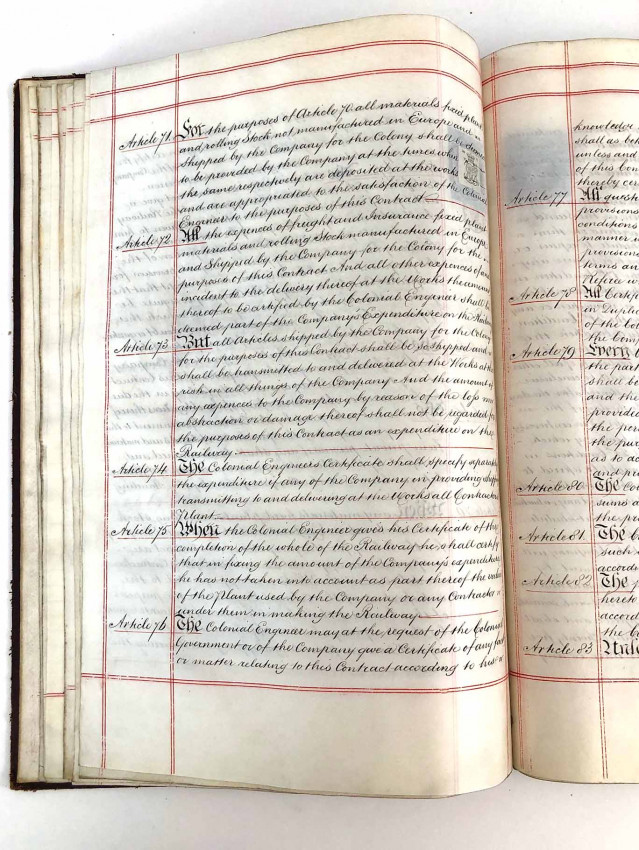 Article 71 For the purposes of Article 70 all materials fixed plant
and rolling Stock not manufactured in Europe and
Shipped by the Company for the Colony shall be
to be provided by the Company at the times when
the same respectively are deposited at the works
and are appropriated to the satisfaction of the Colonial
Engineer to the purposes of this Contract
Article 72 All the expences of freight and Insurance fixed plant
materials and rolling Stock manufactured in Europe
and Shipped by the Company for the Colony for the
purposes of this Contract And all other expences of and
incident to the delivery thereof at the Works the amount
thereof to be certified by the Colonial Engineer shall be
deemed part of the Company's Expenditure on the Railway
Article 73 But all Articles shipped by the Company for the Colony
for the purposes of this Contract shall be so shipped and
shall be transmitted to and delivered at the Works at the
risk in all things of the Company And the amount of
any expences to the Company by reason of the loss
abstraction or damage thereof shall not be regarded for
the purposes of this Contract as an expenditure on the
Railway
Article 74 The Colonial Engineers Certificate shall specify separately
the expenditure if any of the Company in providing
transmitting to and delivering at the Works all Contractors
Plant
Article 75 When the Colonial Engineer gives his Certificate of the
completion of the whole of the Railway he shall certify
that in fixing the amount of the Company's expenditure
he has not taken into account as part thereof the value
of the Plant used by the Company or any Contractor
under them in making the Railway
Article 76 The Colonial Engineer may at the request of the Colonial
Government or of the Company give a Certificate of any fact
or matter relating to this Contract according to his
knowledge
shall as
unless and
of this
thereby
Article 77 All
provisions
conditions
manner
provisions
terms and
Referee
Article 78 All
in
of the
the
Article 79 Every
the
shall be
and the
provided
the
the
as to
and
Article 80 The
sums
the
Article 81 The
such
Article 82 The
hereto
the
Article 83 Unless